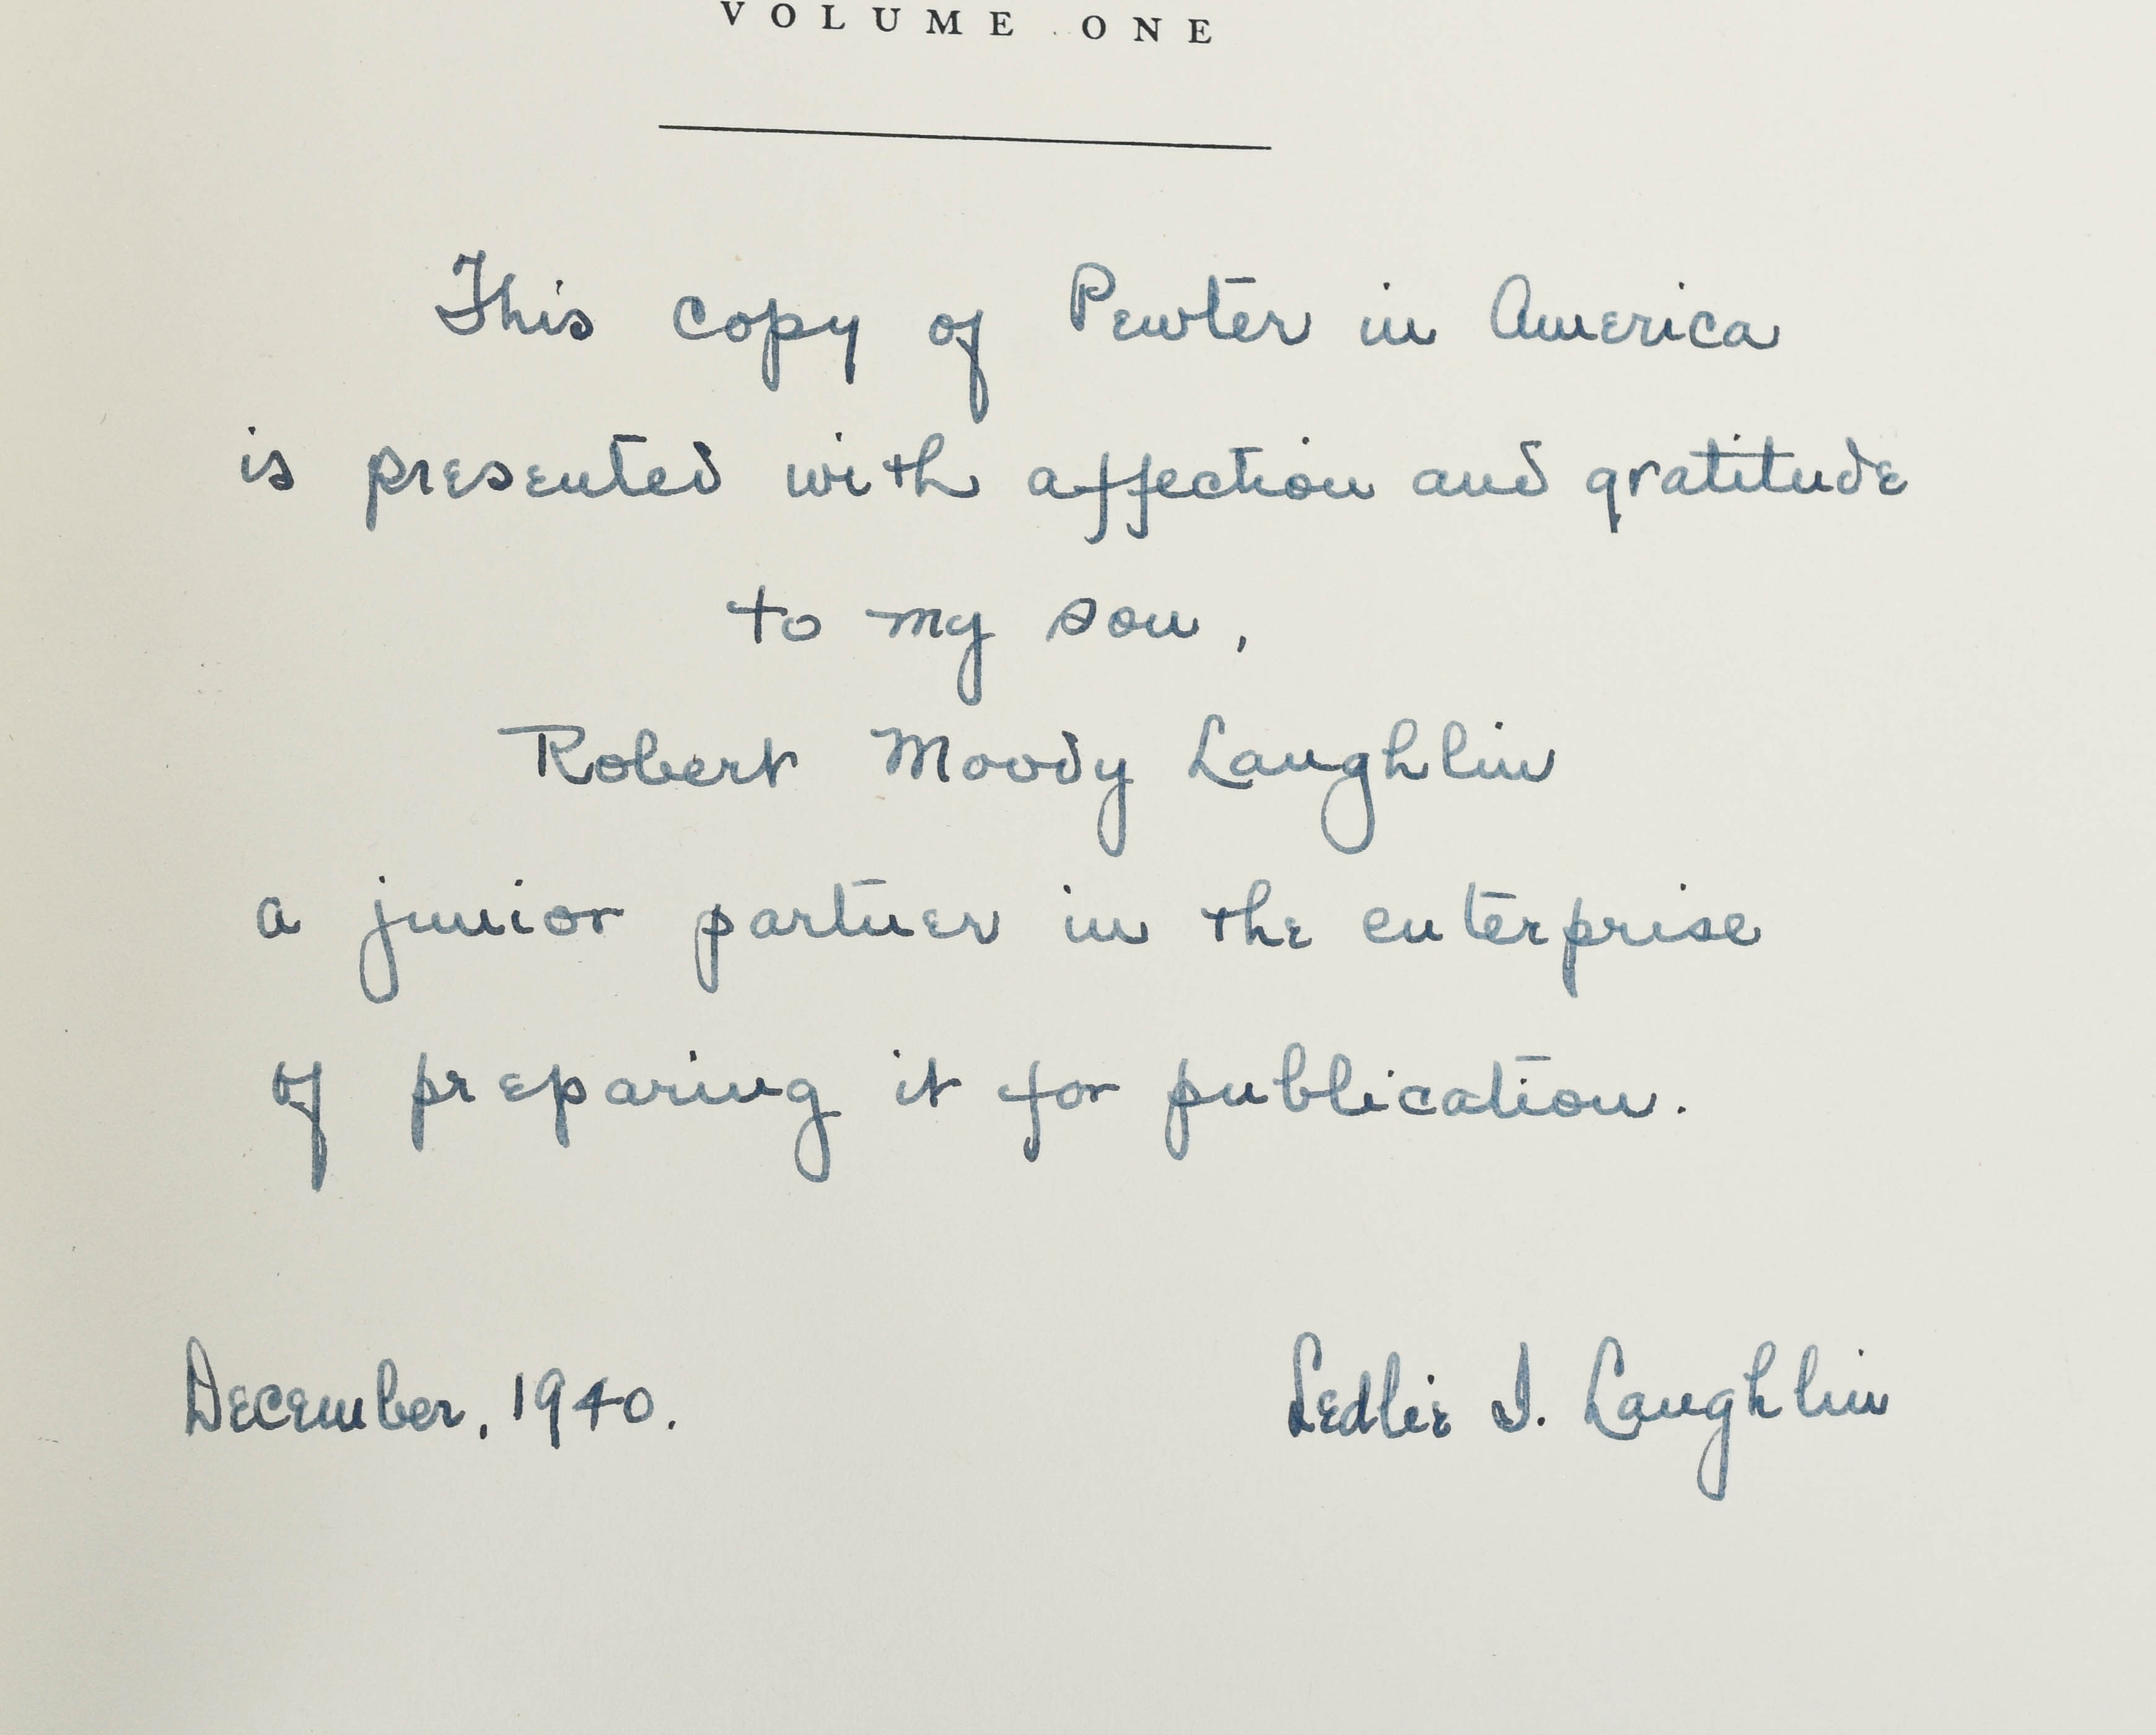 VOLUME ONE
This copy of Pewter in America
is presented with affection and gratitude
to my son,
Robert Moody Laughlin
a junior partner in the enterprise
of preparing it for publication.
December, 1940.
Ledlie I. Laughlin